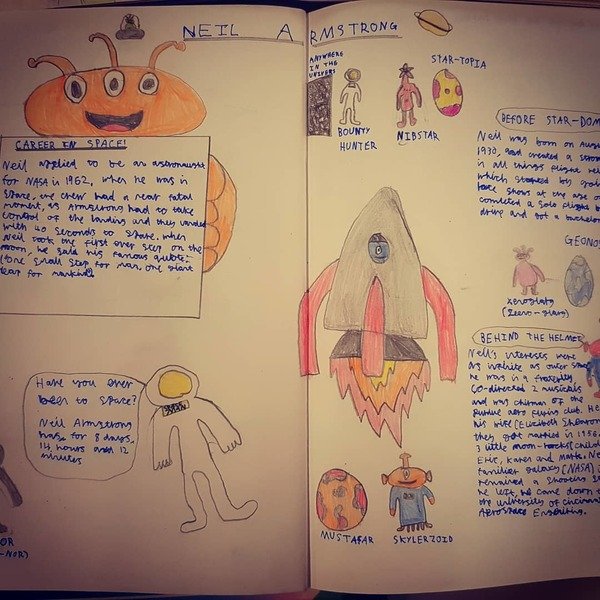 NEIL ARMSTRONG
CAREER IN SPACE!
Neil applied to be an astronaught
for NASA in 1962, when he was in
space, the crew had a near fatal
moment, as Armstrong had to take
control of the landing and they landed
with 40 seconds to spare. When
Neil took the first ever step on the
moon, he said his famous quote:
"One small step for man, one giant
leap for mankind"
Have you ever
been to space?
Neil Armstrong
has, for 8 days,
14 hours and 12
minutes
OR
-NOR)
ANYWHERE
IN THE
UNIVERS
BOUNTY
HUNTER
NIBSTAR
STAR-TOPIA
MUSTAFAR
SKYLERZOID
BEFORE STAR-DOM
Neil was born on Augu
1930, and created a stron
in all things flight rela
which started by goin
race shows at the age o
completed a solo flight b
drive and got a bachelor
GEONOS
Xeroglarg
(Zeero-glarg)
BEHIND THE HELMET
Neil's interests were
as infinite as outer spac
he was in a fraternity
co-directed 2 musicals
and was chairman of the
purdue aero flying club. He
his wife (Elizabeth Shearon
they got married in 1956.
3 little moon-rocks (child
Eric, Karen and Mark. Ne
familier galaxy (NASA)
remained a shooting s
he left, he came down t
the university of cincinna
Aerospace Engineering.